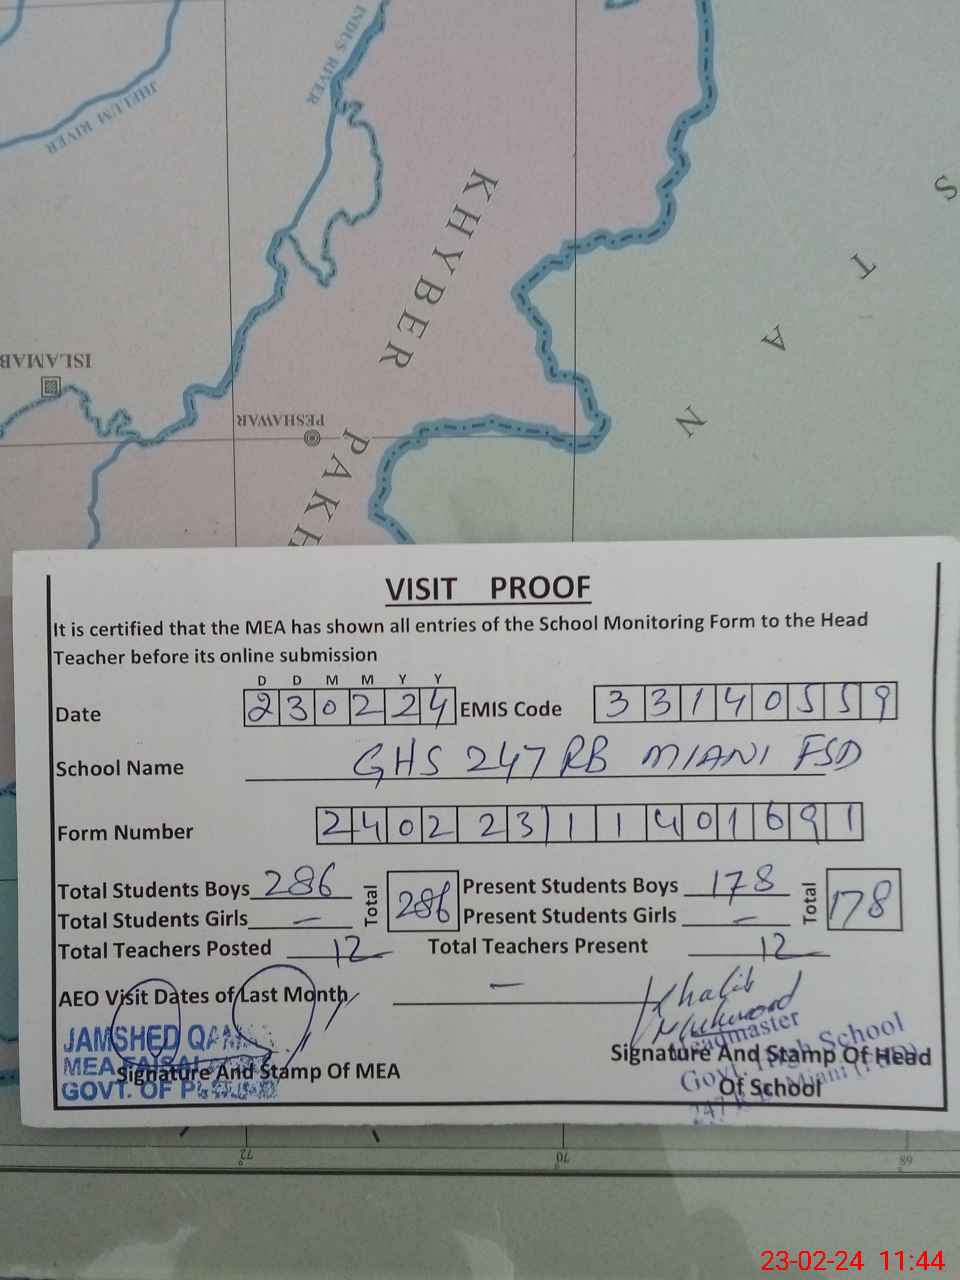 INDUS RIVER
JHELUM RIVER
KHYBER
S
T
A
N
ISLAMAB
PESHAWAR
PAKH
VISIT PROOF
It is certified that the MEA has shown all entries of the School Monitoring Form to the Head
Teacher before its online submission
D D M M Y Y
Date 230224 EMIS Code 33140559
School Name GHS 247 RB MIANI FSD
Form Number 24022311401691
Total Students Boys 286 Total 286 Present Students Boys 178 Total 178
Total Students Girls — Present Students Girls —
Total Teachers Posted 12 Total Teachers Present 12
AEO Visit Dates of Last Month —
Khalid
Mehmood
JAMSHED
MEA FAISAL
GOVT. OF
Signature And Stamp Of MEA
Headmaster
Govt. High School
247 R.B. Miani
Signature And Stamp Of Head
Of School
72° 70° 68°
23-02-24 11:44